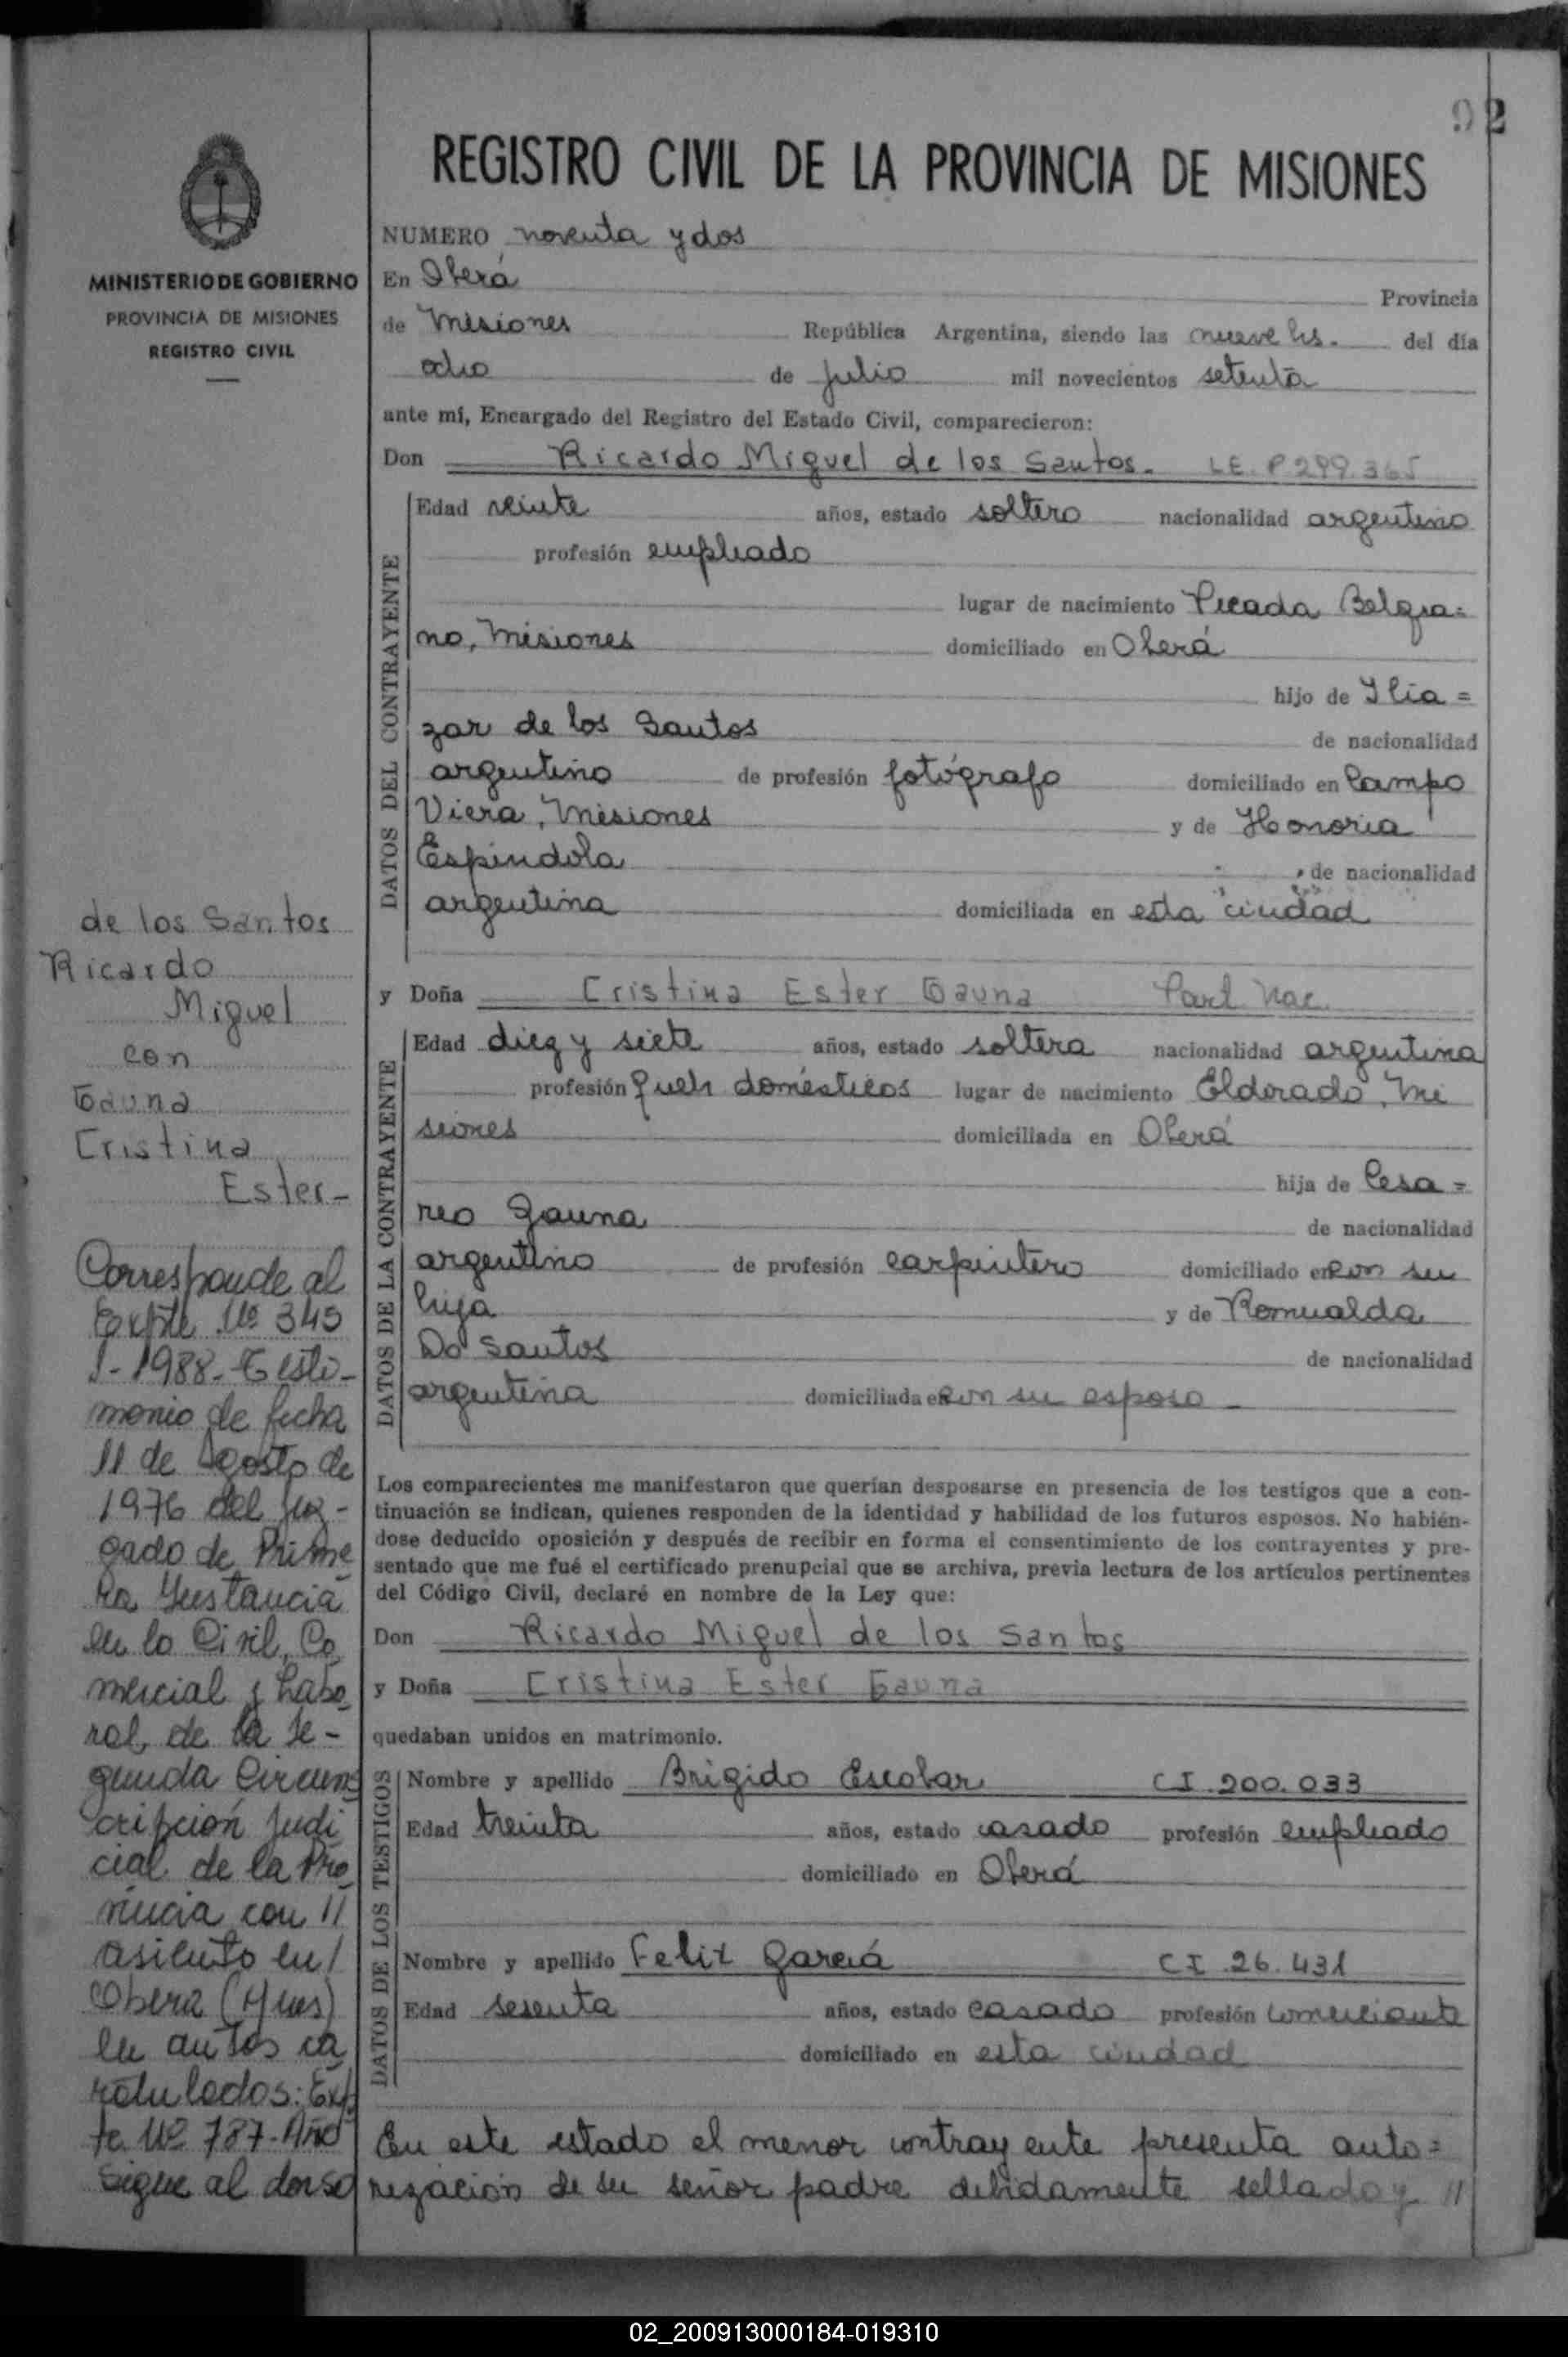 92
REGISTRO CIVIL DE LA PROVINCIA DE MISIONES
MINISTERIO DE GOBIERNO
PROVINCIA DE MISIONES
REGISTRO CIVIL
NUMERO noventa y dos
En Oberá Provincia
de Misiones República Argentina, siendo las nueve hs. del día
ocho de julio mil novecientos setenta
ante mí, Encargado del Registro del Estado Civil, comparecieron:
Don Ricardo Miguel de los Santos. LE. P.299.365
DATOS DEL CONTRAYENTE
Edad veinte años, estado soltero nacionalidad argentino
profesión empleado
lugar de nacimiento Picada Belgra=
no, Misiones domiciliado en Oberá
hijo de Ilia=
zar de los Santos de nacionalidad
argentino de profesión fotógrafo domiciliado en Campo
Viera, Misiones y de Honoria
Espindola de nacionalidad
argentina domiciliada en esta ciudad
y Doña Cristina Ester Gauna Part Nac.
DATOS DE LA CONTRAYENTE
Edad diez y siete años, estado soltera nacionalidad argentina
profesión queh domésticos lugar de nacimiento Eldorado, Mi
siones domiciliada en Oberá
hija de Cesa=
reo Gauna de nacionalidad
argentino de profesión carpintero domiciliado en con su
hija y de Romualda
Do Santos de nacionalidad
argentina domiciliada en con su esposo
Los comparecientes me manifestaron que querían desposarse en presencia de los testigos que a con-
tinuación se indican, quienes responden de la identidad y habilidad de los futuros esposos. No habién-
dose deducido oposición y después de recibir en forma el consentimiento de los contrayentes y pre-
sentado que me fué el certificado prenupcial que se archiva, previa lectura de los artículos pertinentes
del Código Civil, declaré en nombre de la Ley que:
Don Ricardo Miguel de los Santos
y Doña Cristina Ester Gauna
quedaban unidos en matrimonio.
DATOS DE LOS TESTIGOS
Nombre y apellido Brigido Escobar CI 200.033
Edad treinta años, estado casado profesión empleado
domiciliado en Oberá
Nombre y apellido Felix García CI 26.431
Edad sesenta años, estado casado profesión comerciante
domiciliado en esta ciudad
En este estado el menor contrayente presenta auto=
rización de su señor padre debidamente sellado y //
de los Santos
Ricardo
Miguel
con
Gauna
Cristina
Ester-
Corresponde al
Expte. Nº 345
J-1988-Testi-
monio de fecha
11 de Agosto de
1976 del Juz-
gado de Prime
ra Instancia
en lo Civil, Co
mercial y Labo
ral, de la Se-
gunda Circuns
cripción Judi
cial de la Pro
vincia con //
asiento en /
Oberá (Mnes)
en autos ca
ratulados: Exp
te Nº 787-Año
sigue al dorso
02_200913000184-019310